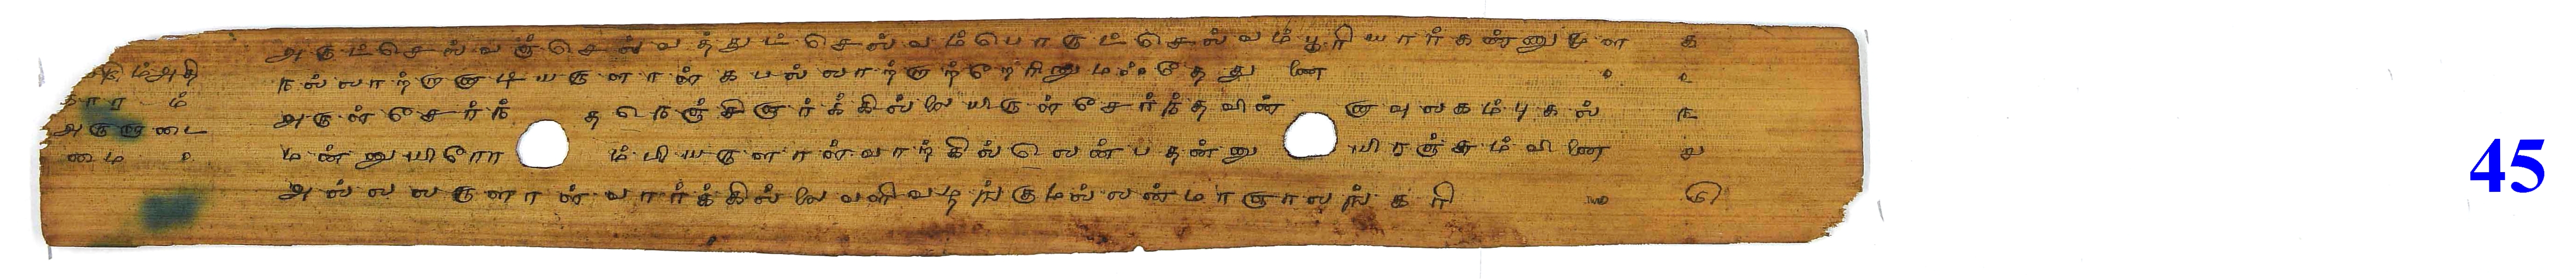 அருட்செல்வஞ்செல்வத்துட் செல்வம்பொருட்செல்வம்பூரியார்கண்ணுமுள க
ரும்அதி நல்லாற்றாளடியருளாள்க பல்லாற்றாற்றேரினுமஃதேதுணை ௨
காரம் அருள்சேர்ந்தநெஞ்சினார்க்கில்லையிருள்சேர்ந்தவின்னாவுலகம்புகல் ௩
அருளுடை
மை மன்னுயிரோம்பியருளாள்வாற்கில்லென்பதன்னுயிரஞ்சும்வினை ௪
அல்லலருளாள்வார்க்கில்லைவளிவழங்குமல்லன்மாஞாலங்கரி ௫
45